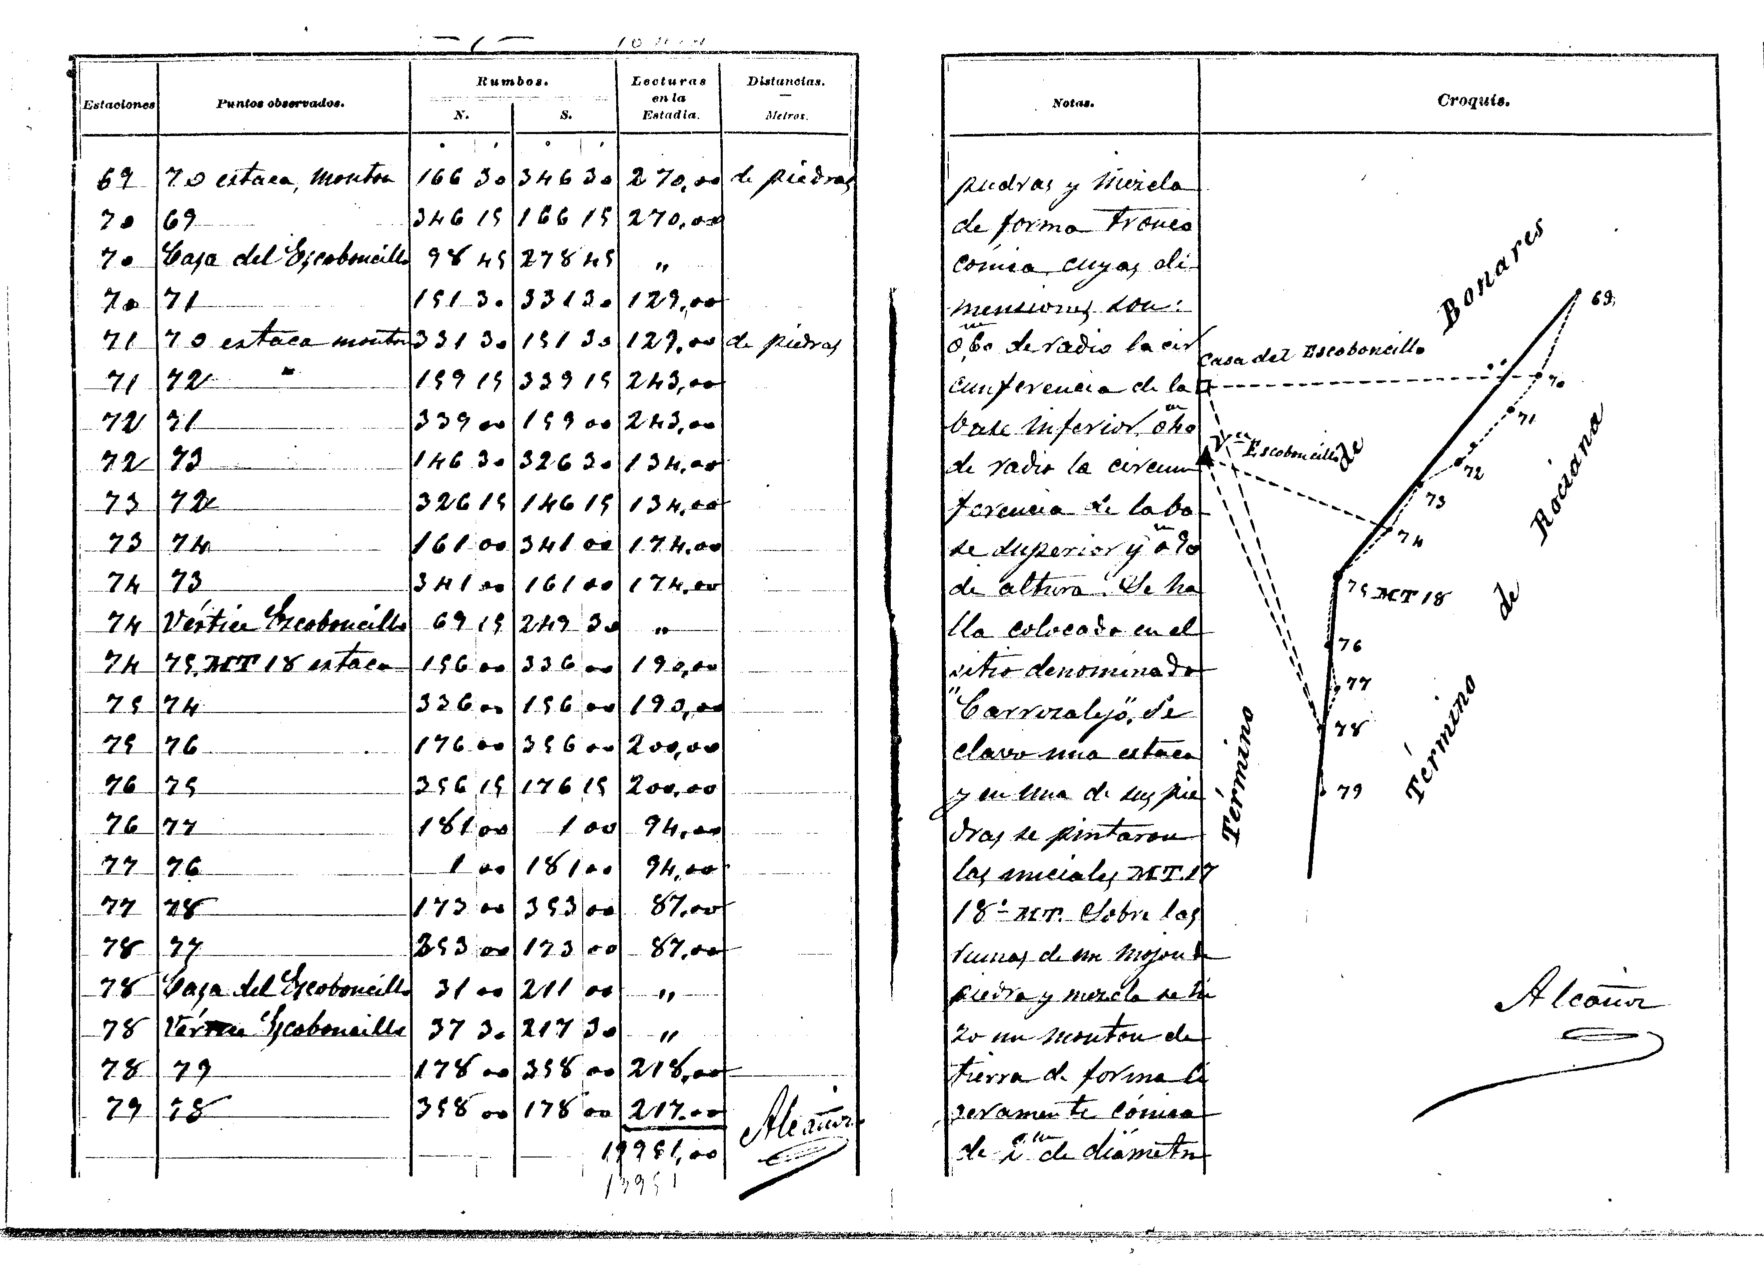 Estaciones Puntos observados. Rumbos. N. S. Lecturas en la Estadia. Distancias. Metros.
69 70 estaca, monton 166 30 346 30 270,00 de piedras
70 69 346 15 166 15 270,00
70 Casa del Escoboncillo 98 45 278 45 "
70 71 151 30 331 30 129,00
71 70 estaca monton 331 30 151 30 129,00 de piedras
71 72 " 159 15 339 15 243,00
72 71 339 00 159 00 243,00
72 73 146 30 326 30 134,00
73 72 326 15 146 15 134,00
73 74 161 00 341 00 174,00
74 73 341 00 161 00 174,00
74 Vértice Escoboncillo 69 15 249 30 "
74 75, MT 18 estaca 156 00 336 00 190,00
75 74 336 00 156 00 190,00
75 76 176 00 356 00 200,00
76 75 356 15 176 15 200,00
76 77 181 00 1 00 94,00
77 76 1 00 181 00 94,00
77 78 173 00 353 00 87,00
78 77 353 00 173 00 87,00
78 Casa del Escoboncillo 31 00 211 00 "
78 Vértice Escoboncillo 37 30 217 30 "
78 79 178 00 358 00 218,00
79 78 358 00 178 00 217,00
19951,00
Alcañiz
Notas.
piedras y mezcla
de forma tronco
cónica, cuyas di
mensiones son:
0,60 m de radio la cir
cunferencia de la
base inferior, 0,40 m
de radio la circun
ferencia de la ba
se superior y 0,70 m
de altura. Se ha
lla colocado en el
sitio denominado
"Carrozalejo", Se
clavo una estaca
y en una de sus pie
dras se pintaron
las iniciales M.T.17
18º MT. Sobre las
ruinas de un mojon de
piedra y mezcla se hi
zo un monton de
tierra de forma li
geramente cónica
de 2 m de diámetro
Croquis.
Bonares
69
Casa del Escoboncillo
70
71
Vce Escoboncillo
de
72
73
74
Rociana
75 MT 18
de
76
77
78
Término
Término
79
Alcañiz